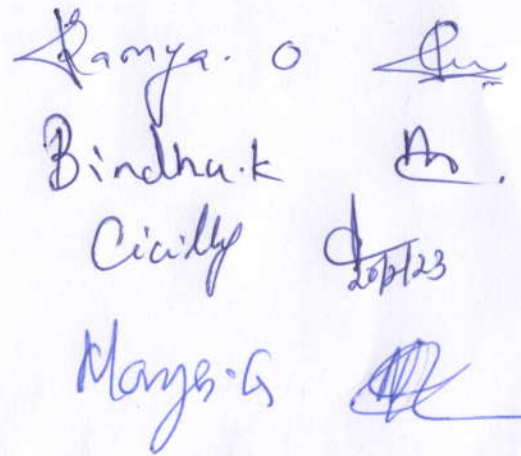 Ramya. O
Bindhu.k
Cicilly
20/2/23
Maya.G